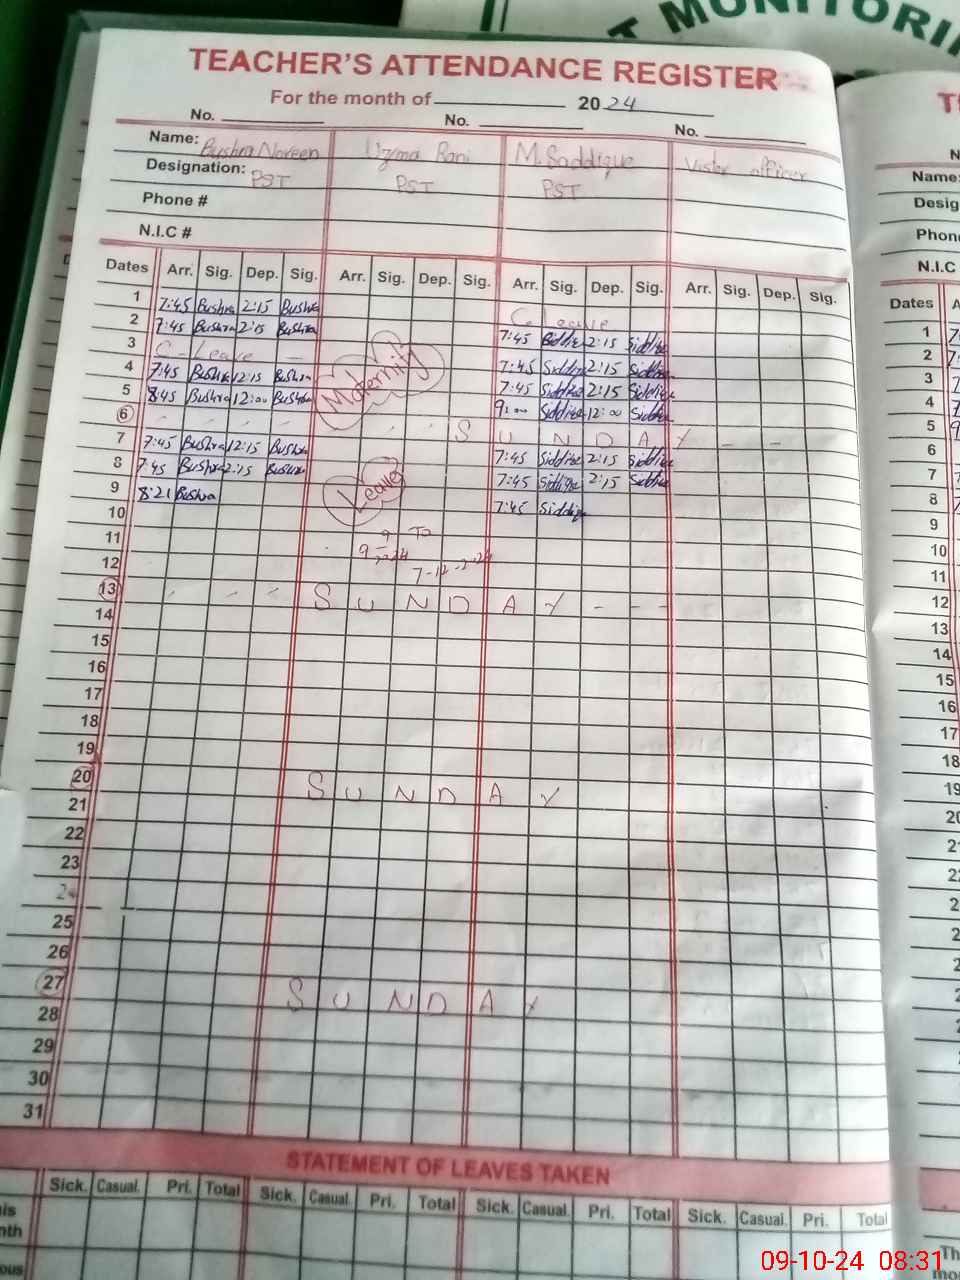 T MONITORI
TEACHER'S ATTENDANCE REGISTER
For the month of 2024
No. No. No.
Name: Bushra Noreen Uzma Rani M. Saddique Vister officer
Designation: PST PST PST
Phone #
N.I.C #
Dates Arr. Sig. Dep. Sig. Arr. Sig. Dep. Sig. Arr. Sig. Dep. Sig. Arr. Sig. Dep. Sig.
1 7:45 Bushra 2:15 Bushra C. Leave
2 7:45 Bushra 2:15 Bushra 7:45 Siddique 2:15 Siddique
3 C-Leave - 7:45 Siddique 2:15 Siddique
4 7:45 Bushra 12:15 Bushra Maternity 7:45 Siddique 2:15 Siddique
5 8:45 Bushra 12:00 Bushra 9:00 Siddique 12:00 Siddique
6 - - - - - - S U N D A Y - - -
7 7:45 Bushra 12:15 Bushra 7:45 Siddique 2:15 Siddique
8 7:45 Bushra 2:15 Bushra Leave 7:45 Siddique 2:15 Siddique
9 8:21 Bushra 7:45 Siddique
10
11 To
12 7-12-2024
13 - - - S U N D A Y - - -
14
15
16
17
18
19
20 S U N D A Y
21
22
23
24
25
26
27 S U N D A Y
28
29
30
31
STATEMENT OF LEAVES TAKEN
Sick. Casual. Pri. Total Sick. Casual. Pri. Total Sick. Casual. Pri. Total Sick. Casual. Pri. Total
his
nth
ous
T
N
Name:
Desig
Phon
N.I.C
Dates A
1 7
2
3
4
5 9
6
7
8
9
10
11
12
13
14
15
16
17
18
19
20
2
2
2
2
2
2
2
Th
mo
09-10-24 08:31